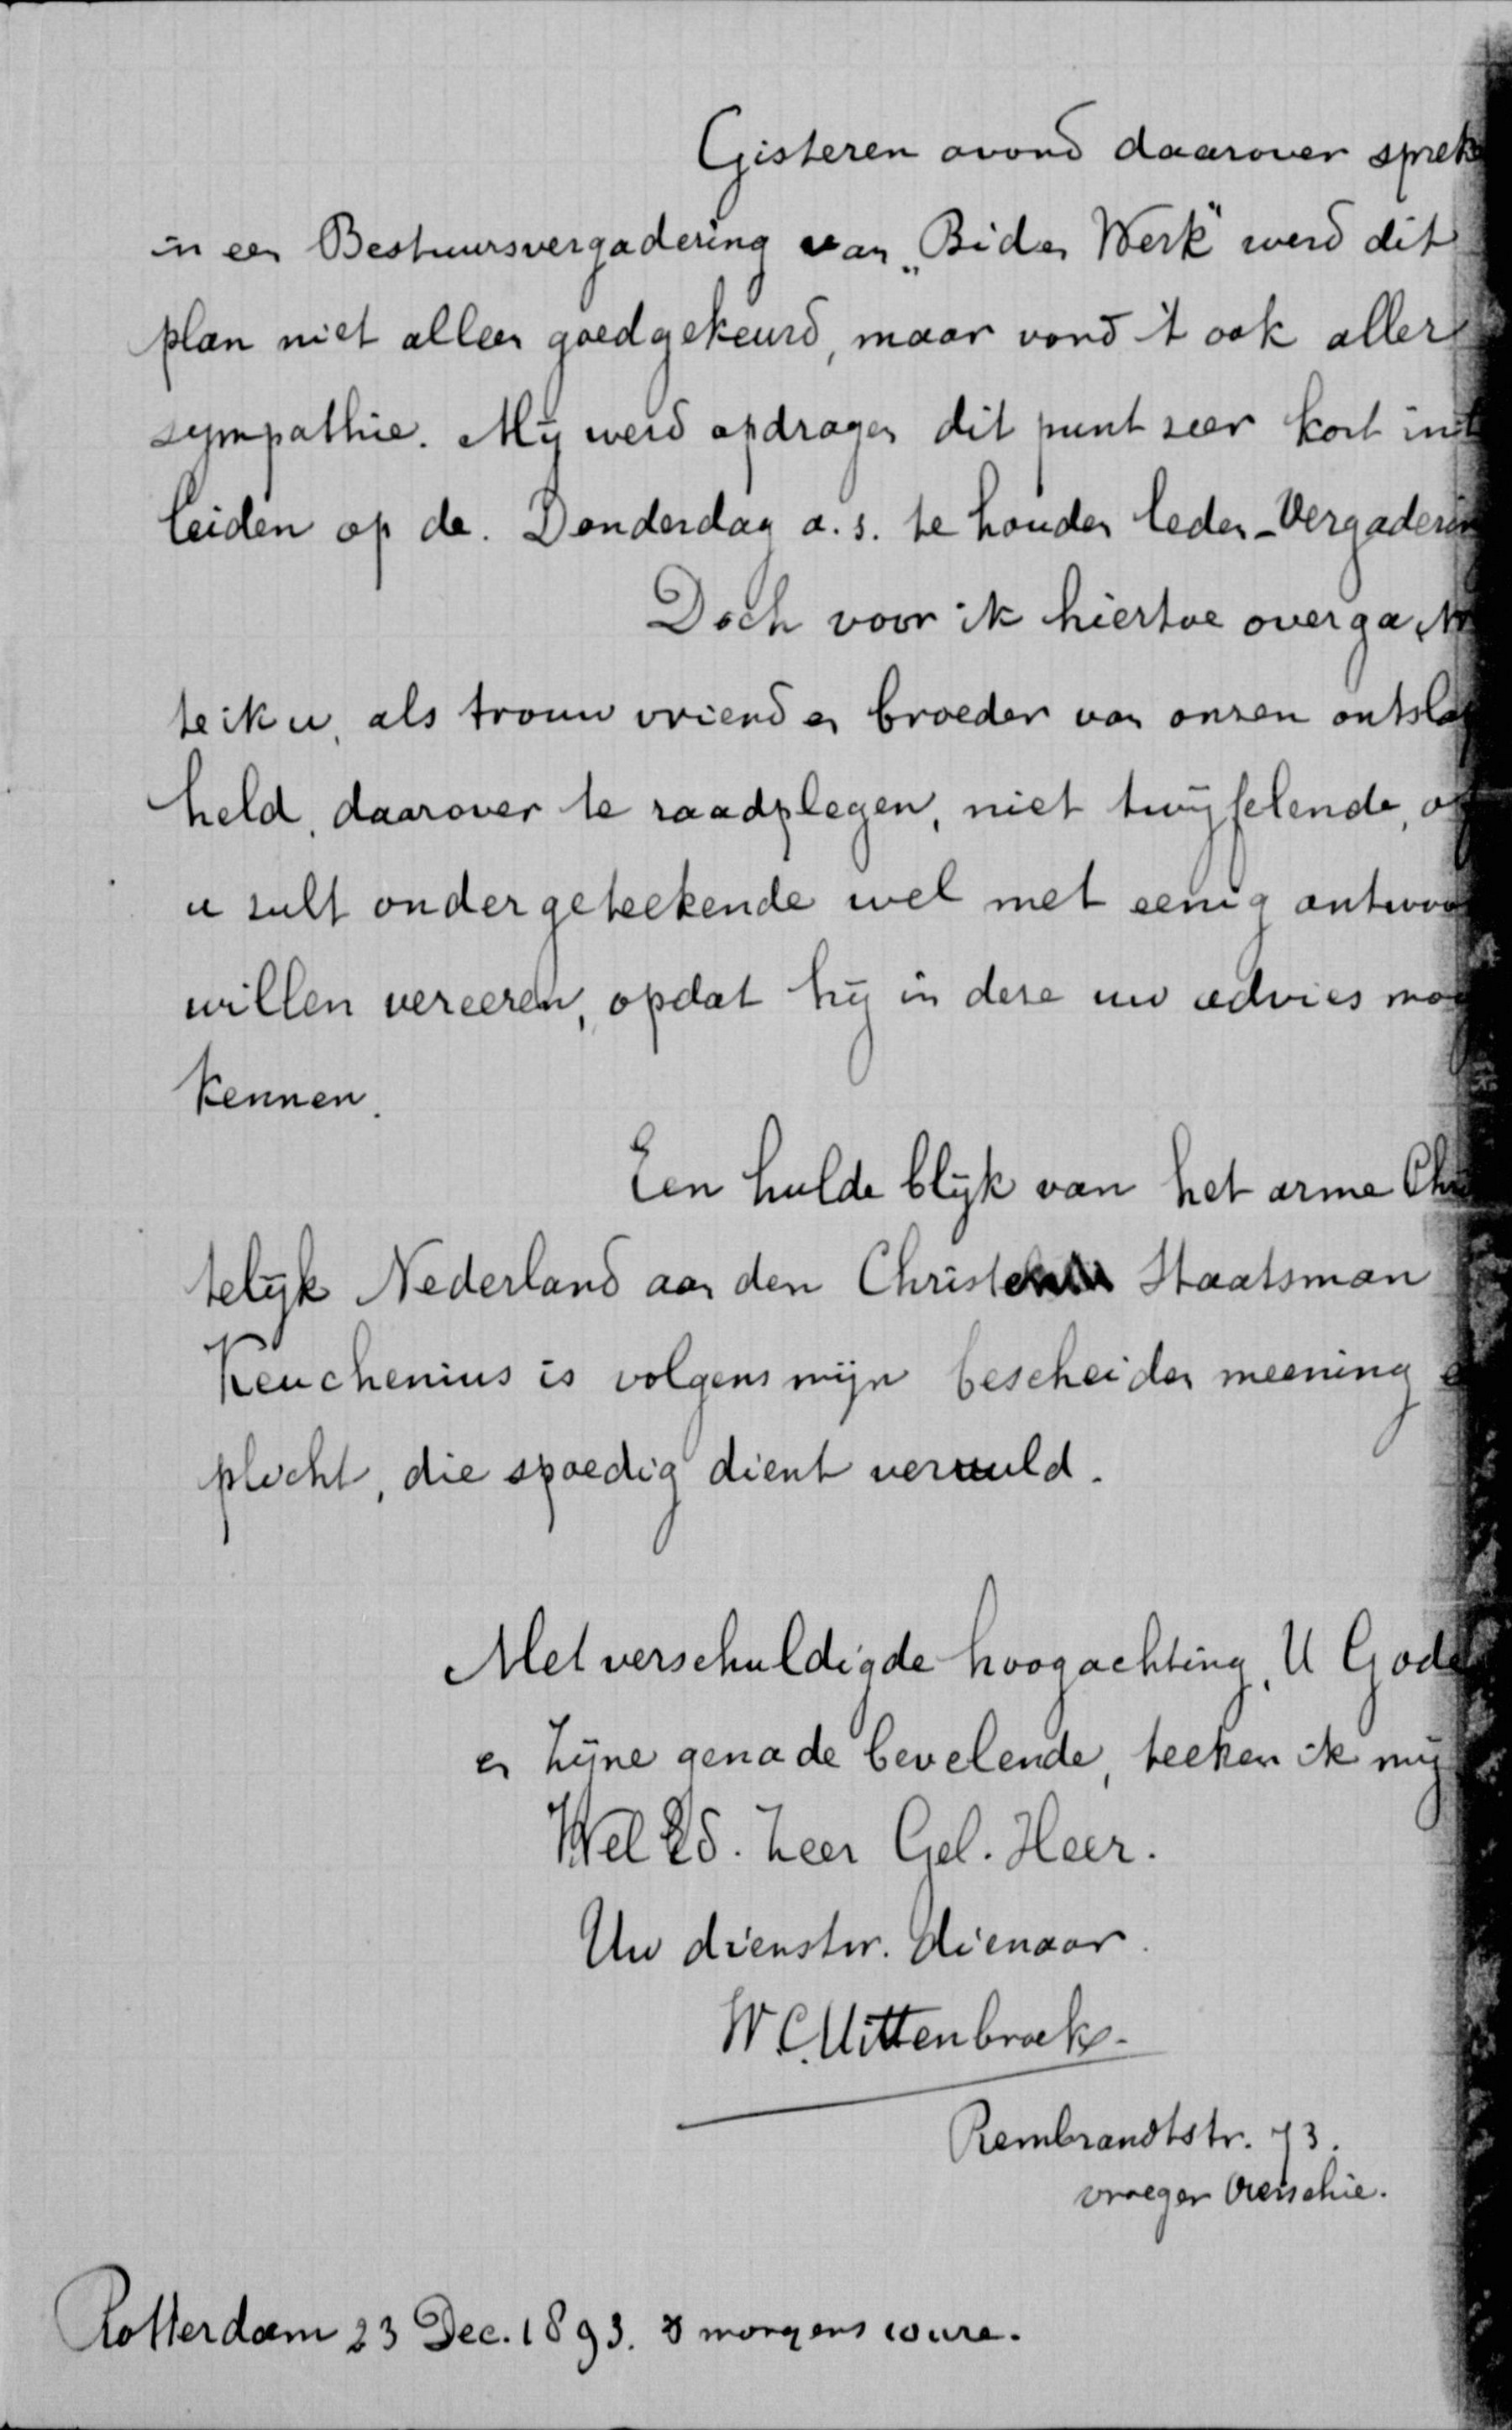 Gisteren avond daarover sprek
in een Bestuursvergadering van „Bid en Werk" werd dit
plan niet alleen goedgekeurd, maar vond 't ook aller
sympathie. Mij werd opdragen dit punt zeer kort in t
leiden op de. Donderdag a.s. te houden leden-Vergaderin
Doch voor ik hiertoe overga,
te ik u, als trouw vriend en broeder van onzen ontsla
held, daarover te raadplegen, niet twijfelende, of
u zult ondergeteekende wel met eenig antwoo
willen vereeren, opdat hij in deze uw advies mog
kennen.
Een hulde blijk van het arme Chr
telijk Nederland aan den Christen Staatsman
Keuchenius is volgens mijn bescheiden meening e
plicht, die spoedig dient vervuld.
Met verschuldigde hoogachting, U Gode
en Zijne genade bevelende, teeken ik mij
Wel Ed. Zeer Gel. Heer.
Uw dienstw. dienaar.
W C. Uittenbroek.
Rembrandtstr. 73.
vroeger Overschie.
Rotterdam 23 Dec. 1893. 's morgens 10 ure.